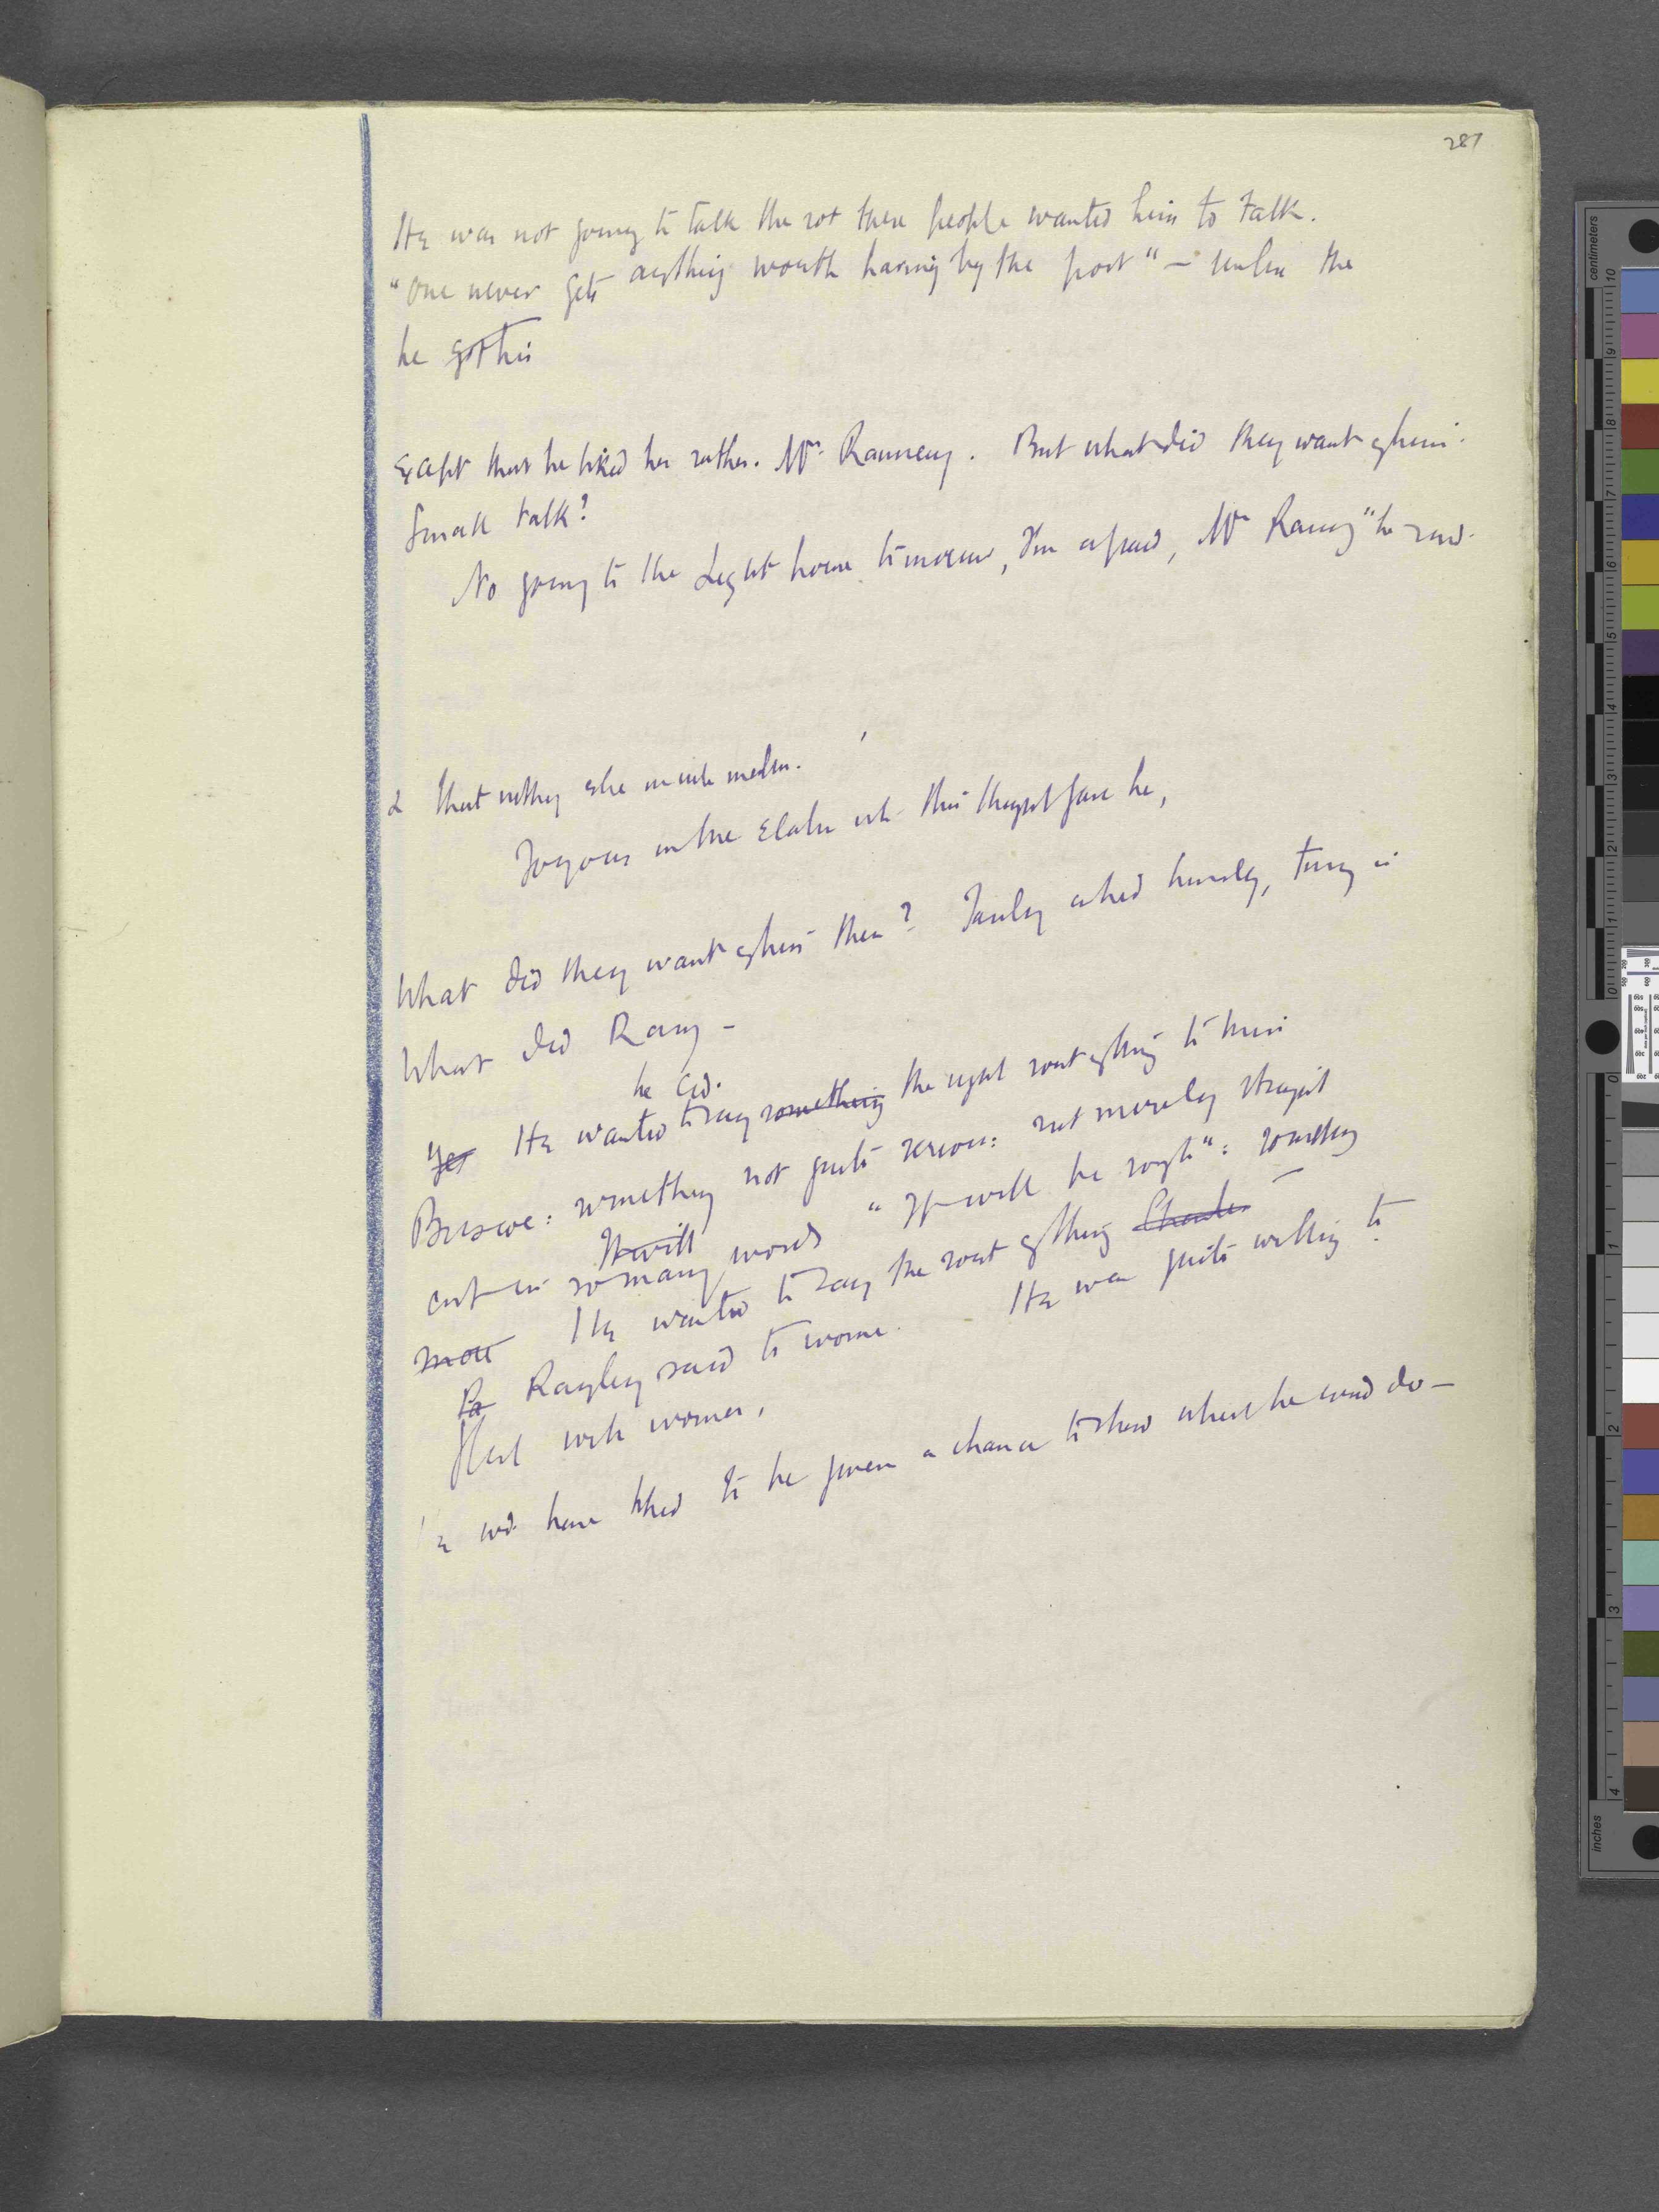 281
He was not going to talk the rot these people wanted him to talk.
"One never gets anything worth having by the post" – unless the
he got his
Except that he liked her rather. Mrs. Ramsay. But what did they want of him.
Small talk?
No going to the Lighthouse tomorrow, I'm afraid, Mrs Ramsay" he said.
& that nothing else
Joyous in the this thought gave he,
What did they want of him then? Tansley asked himself, turning
What did Ramsay –
he cd.
Yes He wanted to say something the right sort of thing to Miss
Briscoe: something not quite serious: not merely straight
It will
out in so many words "It will be rough": something
more He wanted to say the sort of thing Charles –
Ra Rayley said to women. He was quite willing to
flirt with women,
He wd. have liked to be given a chance to show what he could do –
centimeters
inches